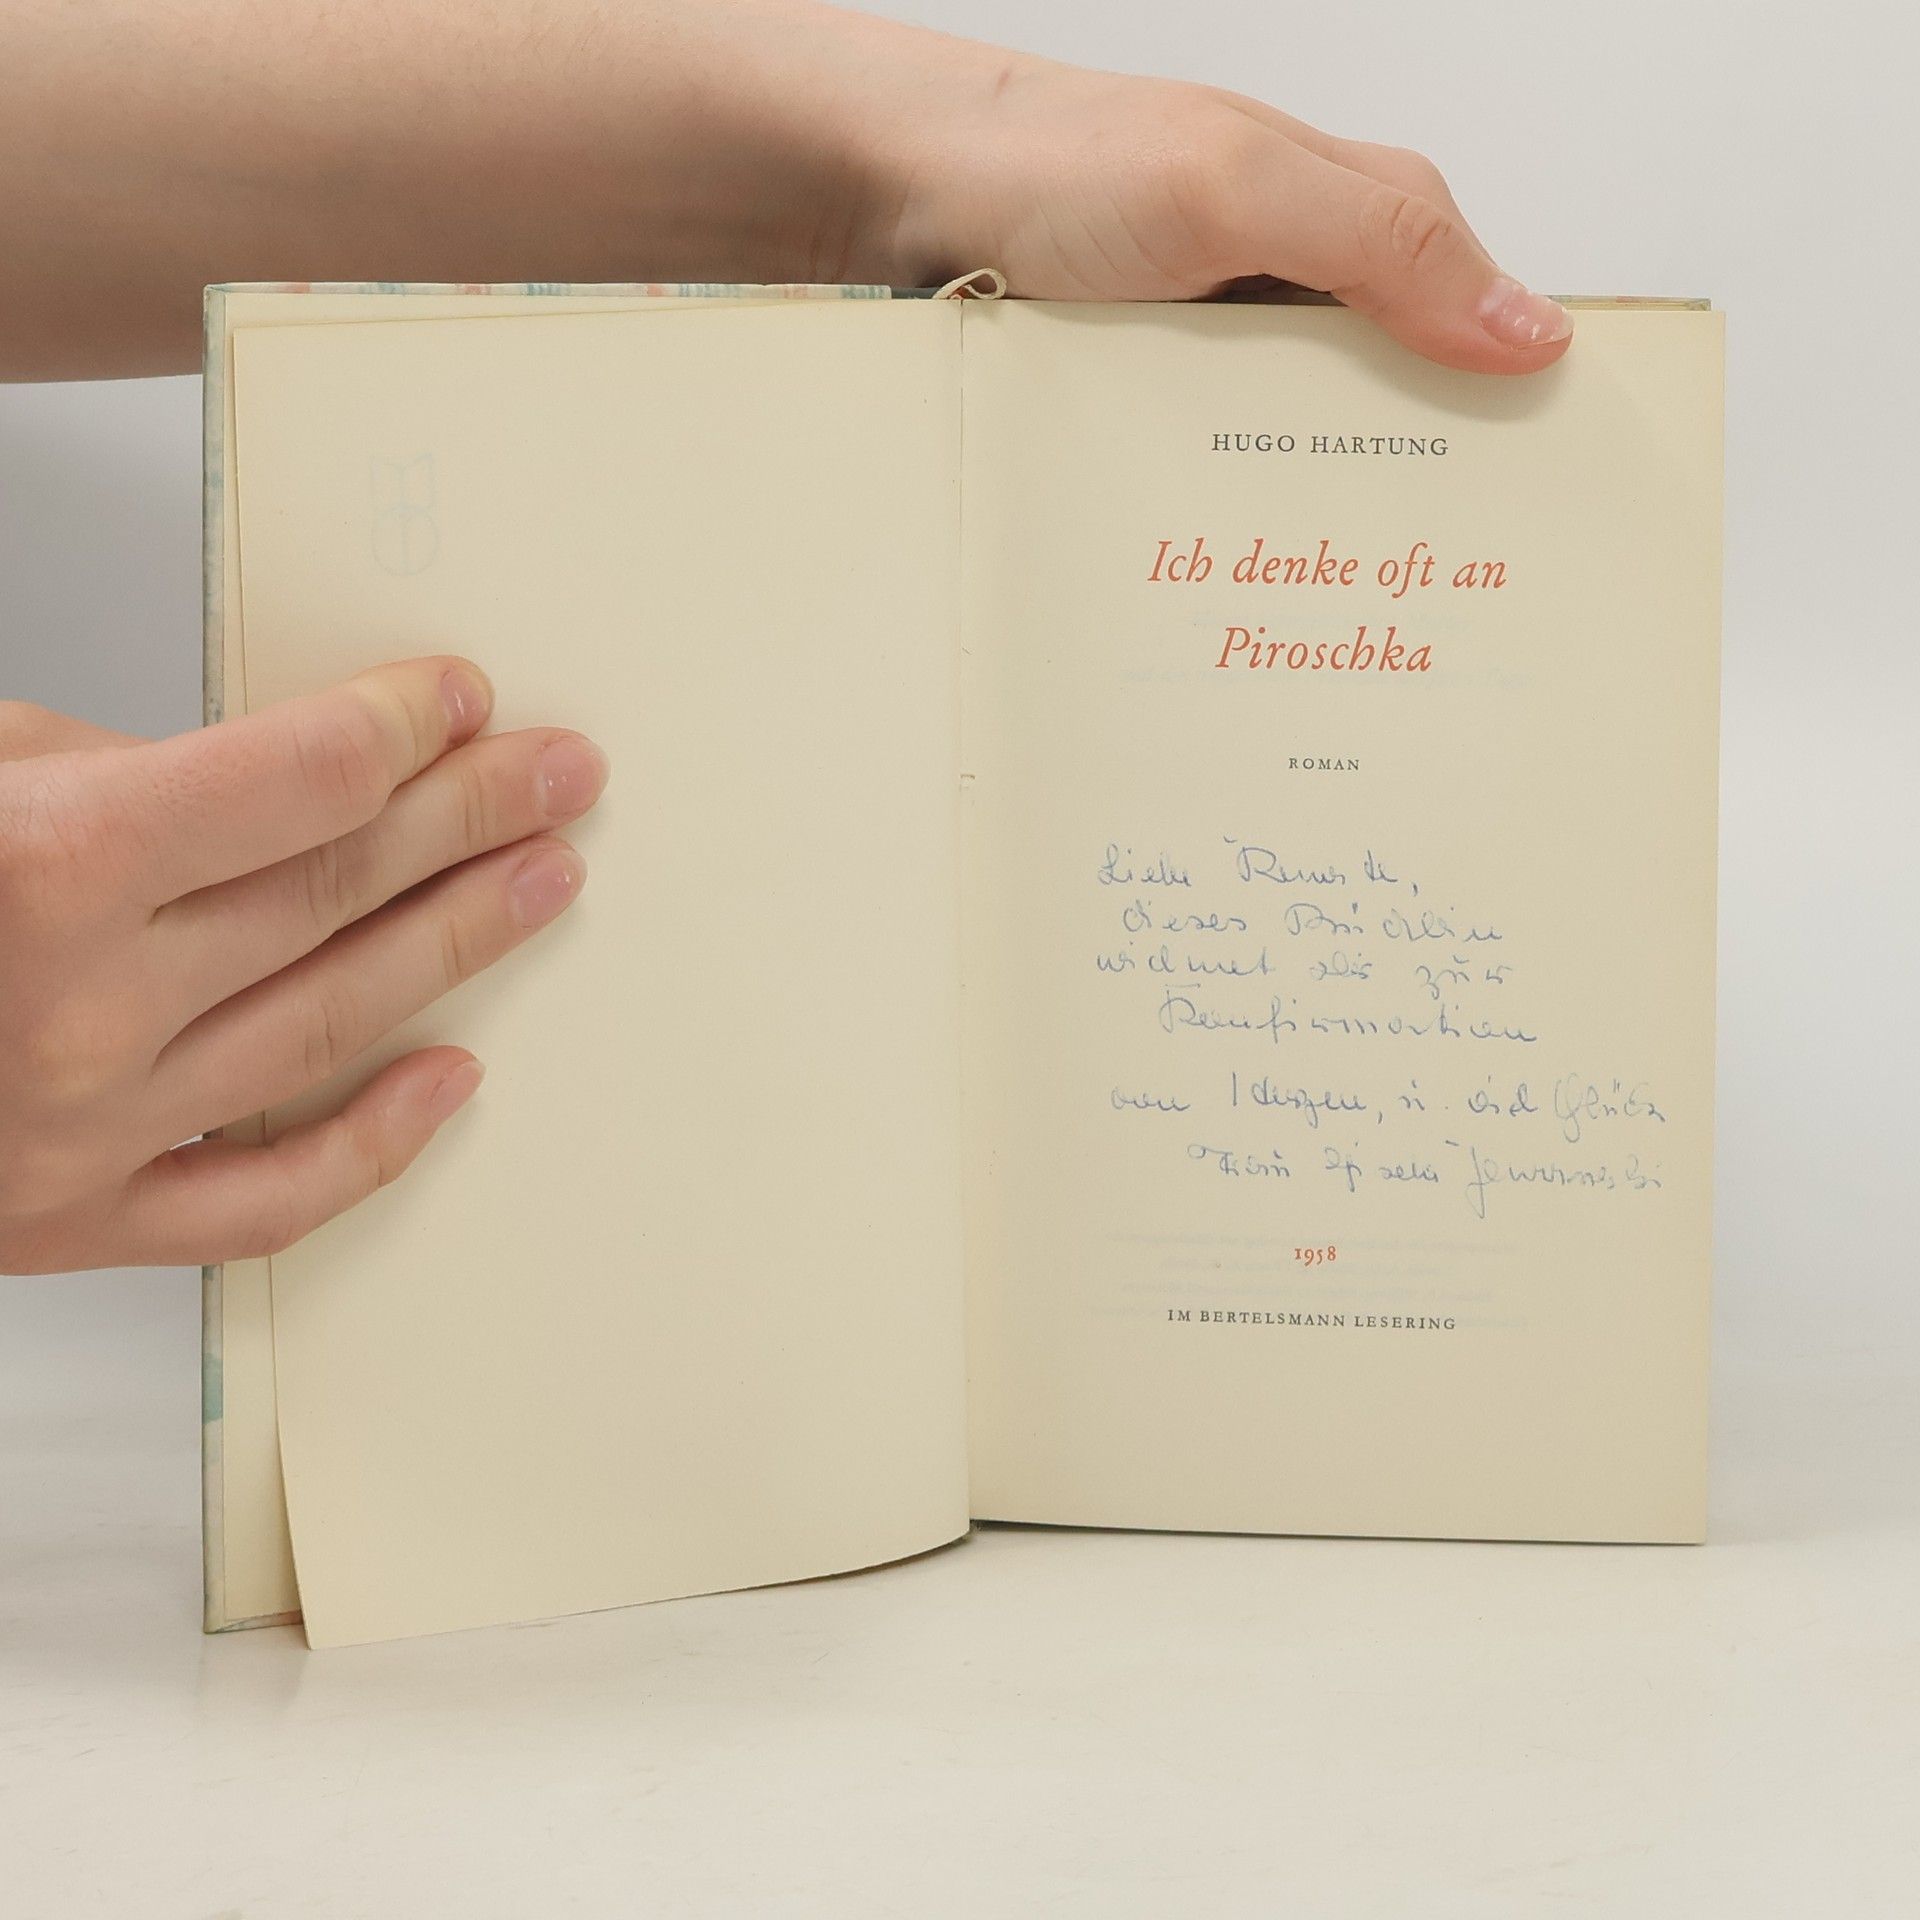 HUGO HARTUNG
Ich denke oft an
Piroschka
ROMAN
Liebe Renate,
dieses Büchlein
widmet dir zur
Konfirmation
von Herzen, u. viel Glück
1958
IM BERTELSMANN LESERING